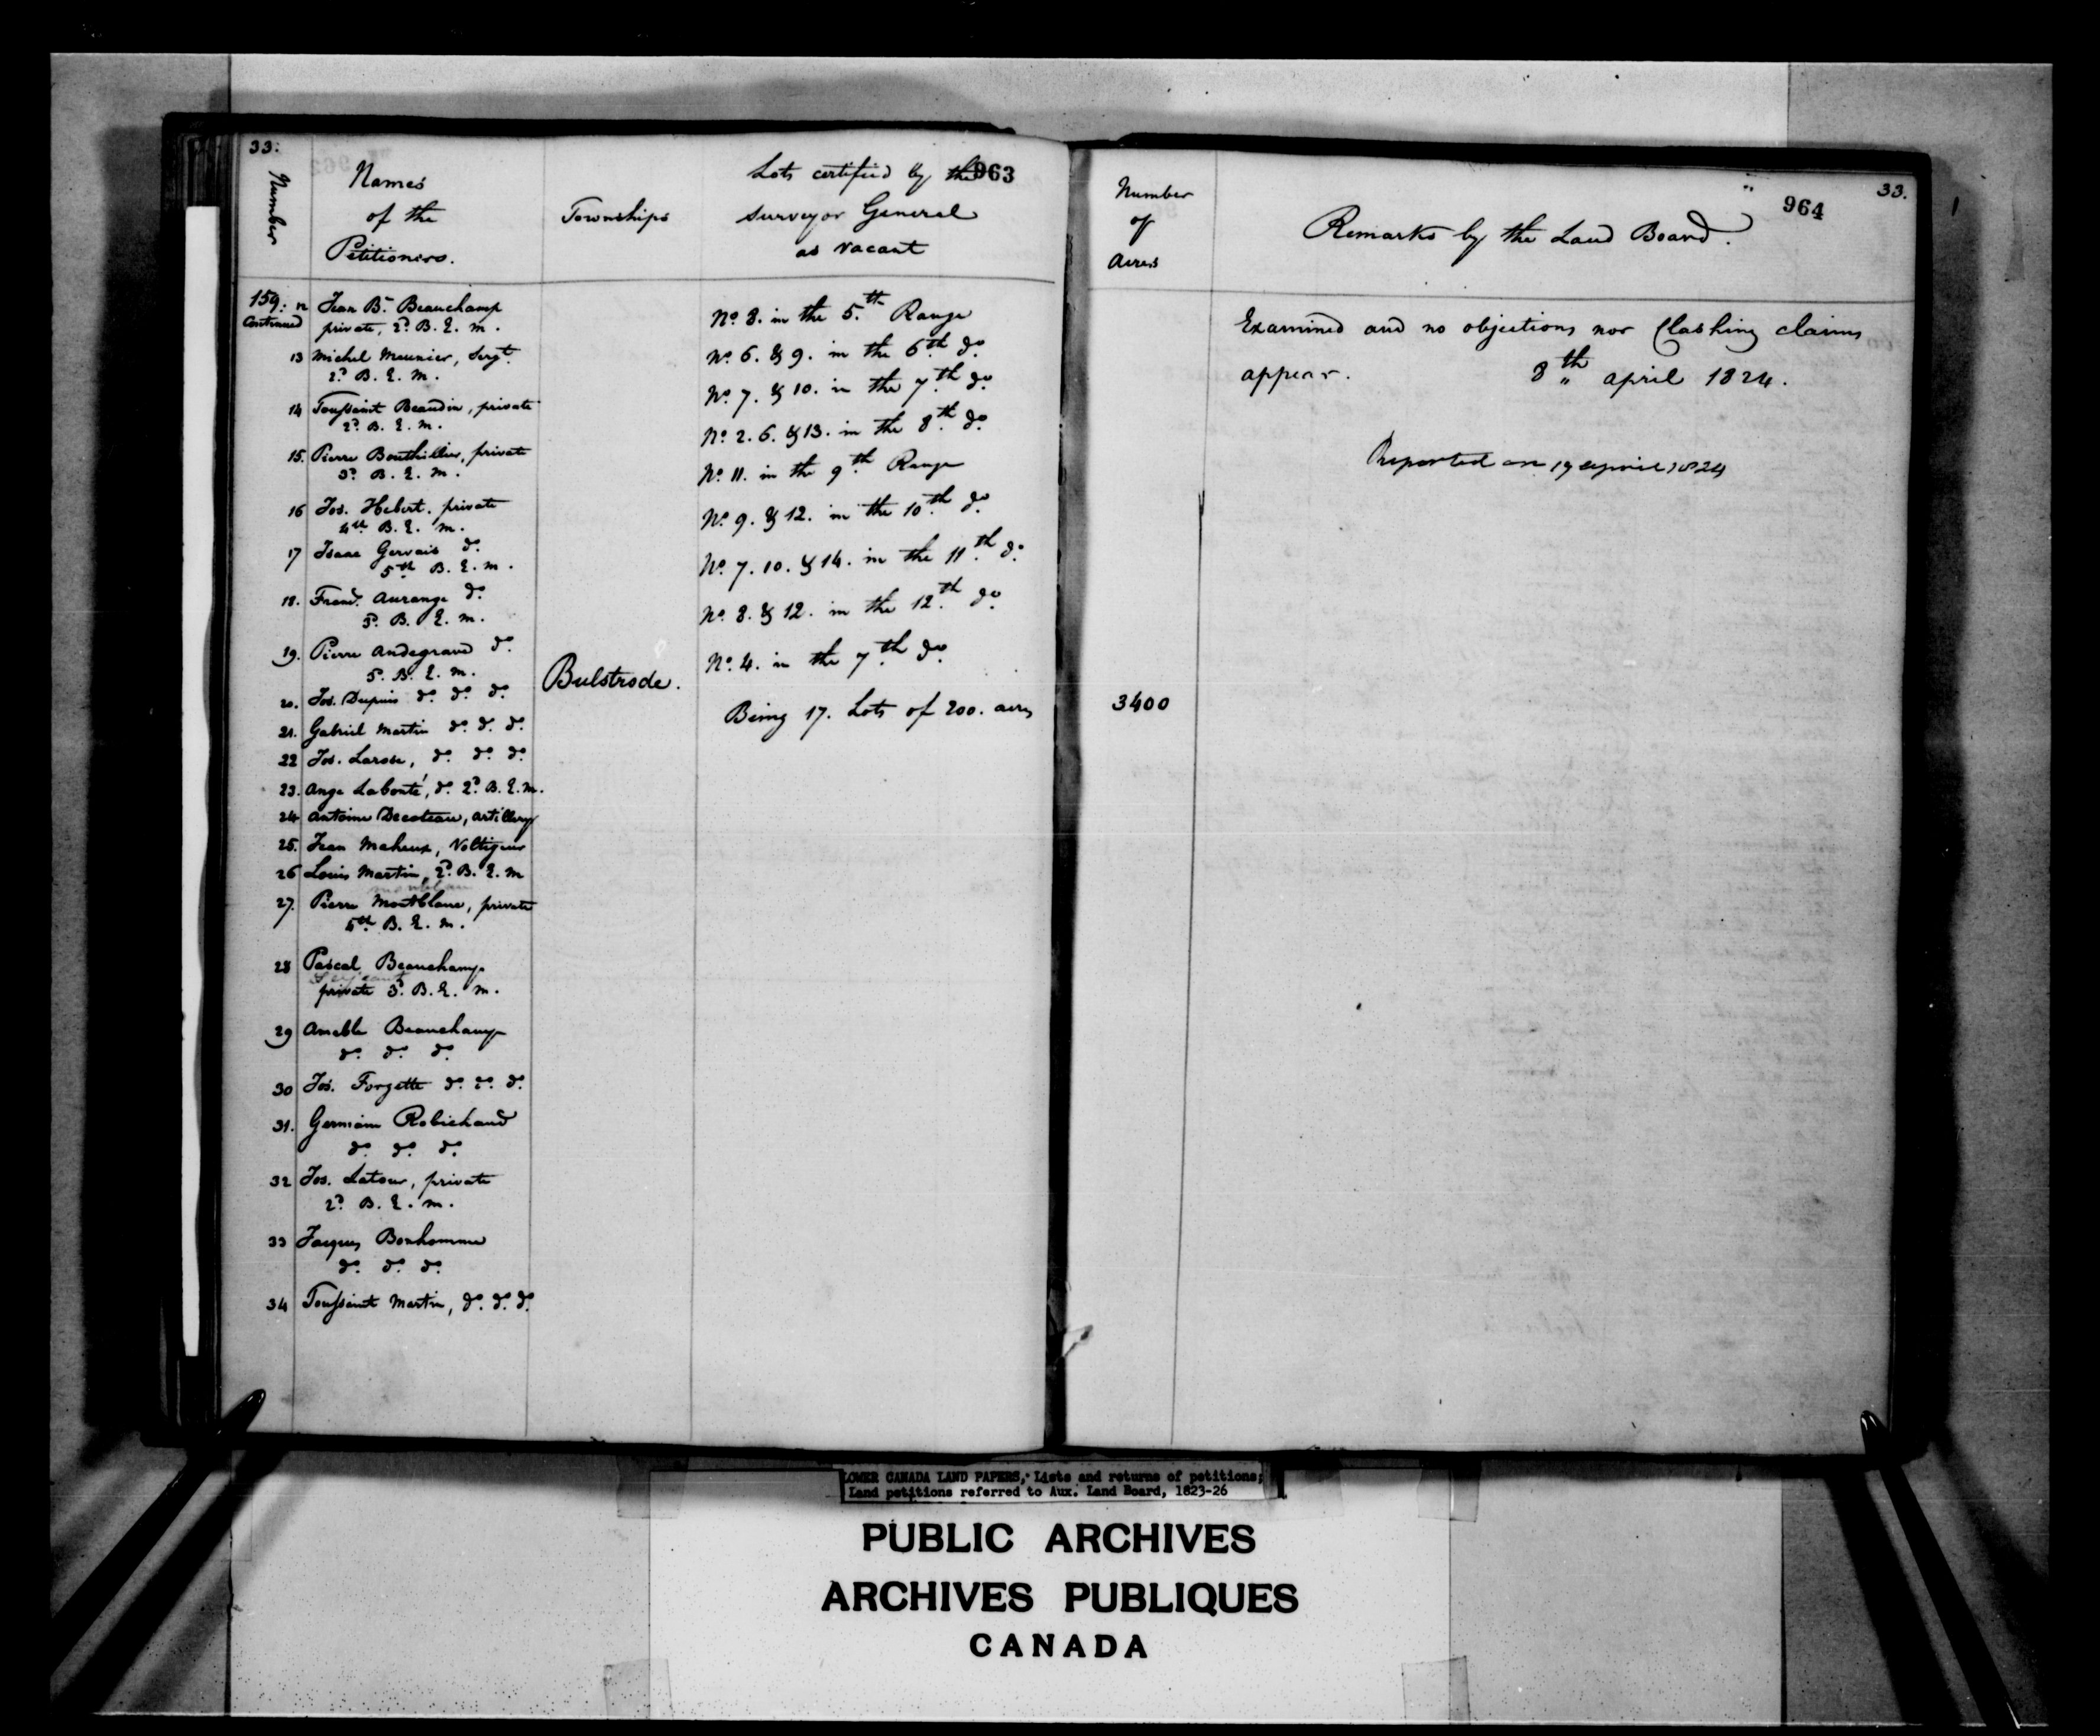 33:
963
Number
Names
of the
Petitioners.
Townships
Lots certified by the
Surveyor General
as vacant
159: 12 Jean Bte. Beauchamp
Continued private, 2d. B. E. M.
13 Michel Meunier, Sergt.
2d. B. E. M.
14 Toussaint Beaudin, private
2d. B. E. M.
15. Pierre Bouthillier, private
3d. B. E. M.
16 Jos. Hebert, private
4th B. E. M.
17 Isaac Gervais do.
5th B. E. M.
18. Frans. Aurange do.
5. B. E. M.
19. Pierre Andegrave do.
5. B. E. M.
20. Jos. Dupuis do. do. do.
21. Gabriel Martin do. do. do.
22 Jos. Larose, do. do. do.
23. Ange Labonté, do. 2d. B. E. M.
24 Antoine Decoteau, Artillery
25. Jean Maheux, Voltigeur
26 Louis Martin, 2d. B. E. M
27. Pierre Montblanc, private
5th B. E. M.
28 Pascal Beauchamp
Serjeant
private 3d. B. E. M.
29 Amable Beauchamp
do. do. do.
30 Jos. Forgette do. do. do.
31. Germain Robichaud
do. do. do.
32 Jos. Latour, private
2d. B. E. M.
33 Jacques Bonhomme
do. do. do.
34 Toussaint Martin, do. do. do.
Bulstrode.
No. 8. in the 5.th Range
No. 6. & 9. in the 6th do.
No. 7. & 10. in the 7.th do.
No. 2. 6. & 13. in the 8.th do.
No. 11. in the 9.th Range
No. 9. & 12. in the 10.th do.
No. 7. 10. & 14. in the 11.th do.
No. 8. & 12. in the 12.th do.
No. 4. in the 7.th do.
Being 17. Lots of 200. acres
33.
964
Number
of
Acres
Remarks by the Land Board.
3400
Examined and no objections nor Clashing claims
appear. 8th april 1824.
Reported on 19 april 1824
LOWER CANADA LAND PAPERS, Lists and returns of petitions;
Land petitions referred to Aux. Land Board, 1823-26
PUBLIC ARCHIVES
ARCHIVES PUBLIQUES
CANADA